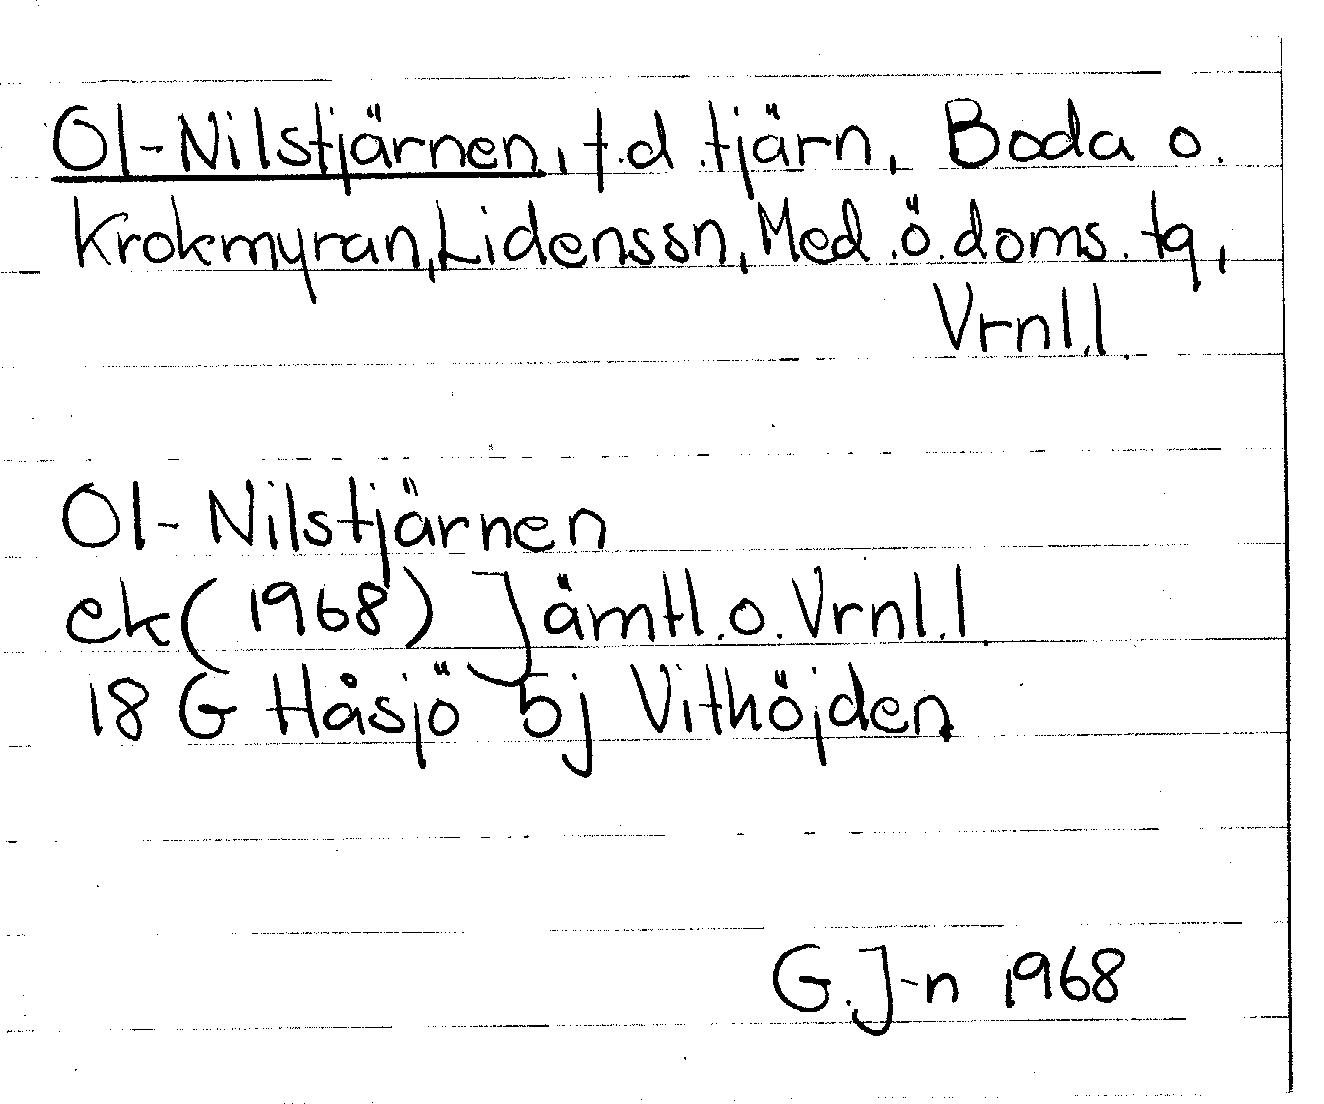 Ol-Nilstjärnen, f.d. tjärn, Boda o.
Krokmyran, Lidenssn, Med.ö.doms.tg,
Vrnl.l.
Ol-Nilstjärnen
ek (1968) Jämtl.o.Vrnl.l.
18 G Håsjö 5j Vithöjden
G.J-n 1968